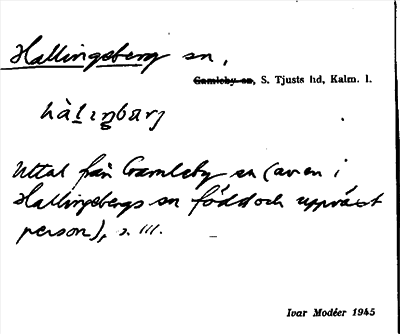 Hallingeberg sn,
Gamleby sn, S. Tjusts hd, Kalm. l.
hàlıŋbærj
Uttal från Gamleby sn (av en i
Hallingebergs sn född och uppväxt
person), s. III.
Ivar Modéer 1945